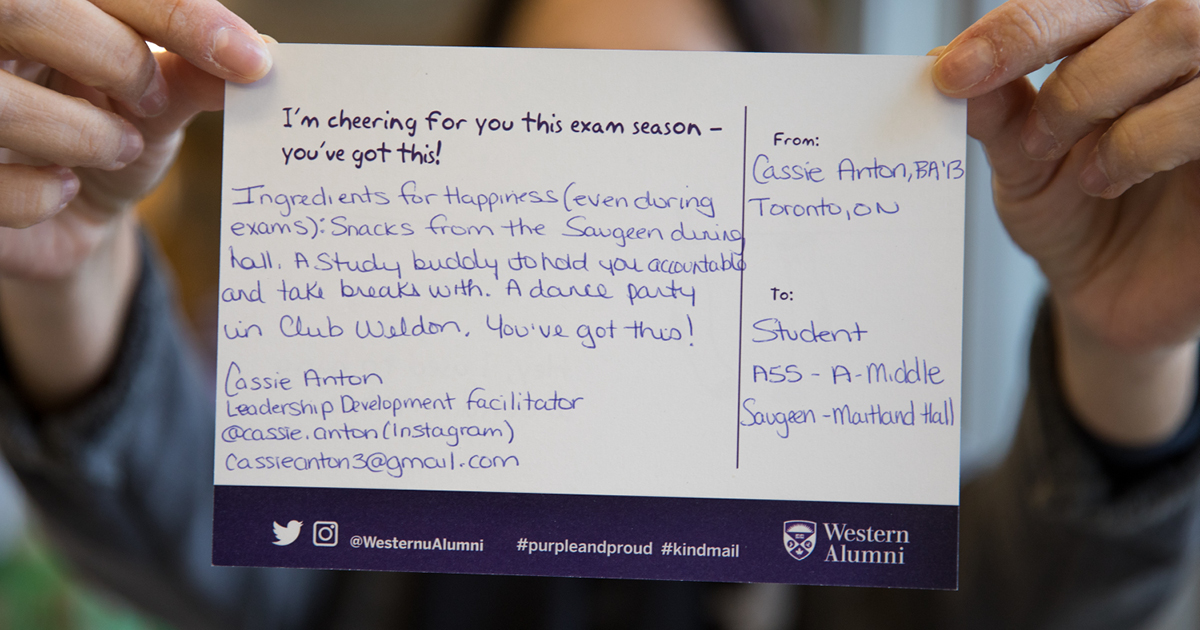 I'm cheering for you this exam season –
you've got this!
Ingredients for Happiness (even during
exams): Snacks from the Saugeen dining
hall. A Study buddy to hold you accountable
and take breaks with. A dance party
in Club Weldon. You've got this!
Cassie Anton
Leadership Development Facilitator
@cassie.anton (Instagram)
Cassieanton3@gmail.com
From:
Cassie Anton, BA'13
Toronto, ON
To:
Student
A55 - A-Middle
Saugeen-Maitland Hall
@WesternuAlumni #purpleandproud #kindmail
Western
Alumni